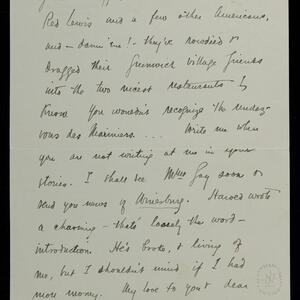 Red Lewis and a few other Americans,
and – damn 'em! – they've rowdied &
dragged their Greenwich Village friends
into the two nicest restaurants by
You wouldn't recognize the Rendez-
vous des Mariniers.... Write me when
you are not writing at me in your
stories. I shall see Mlle Gay soon or
send you news of Harold wrote
a charming – that's loosely the word –
introduction. He's broke, & living off
me, but I shouldn't mind if I had
more money. My love to you & dear